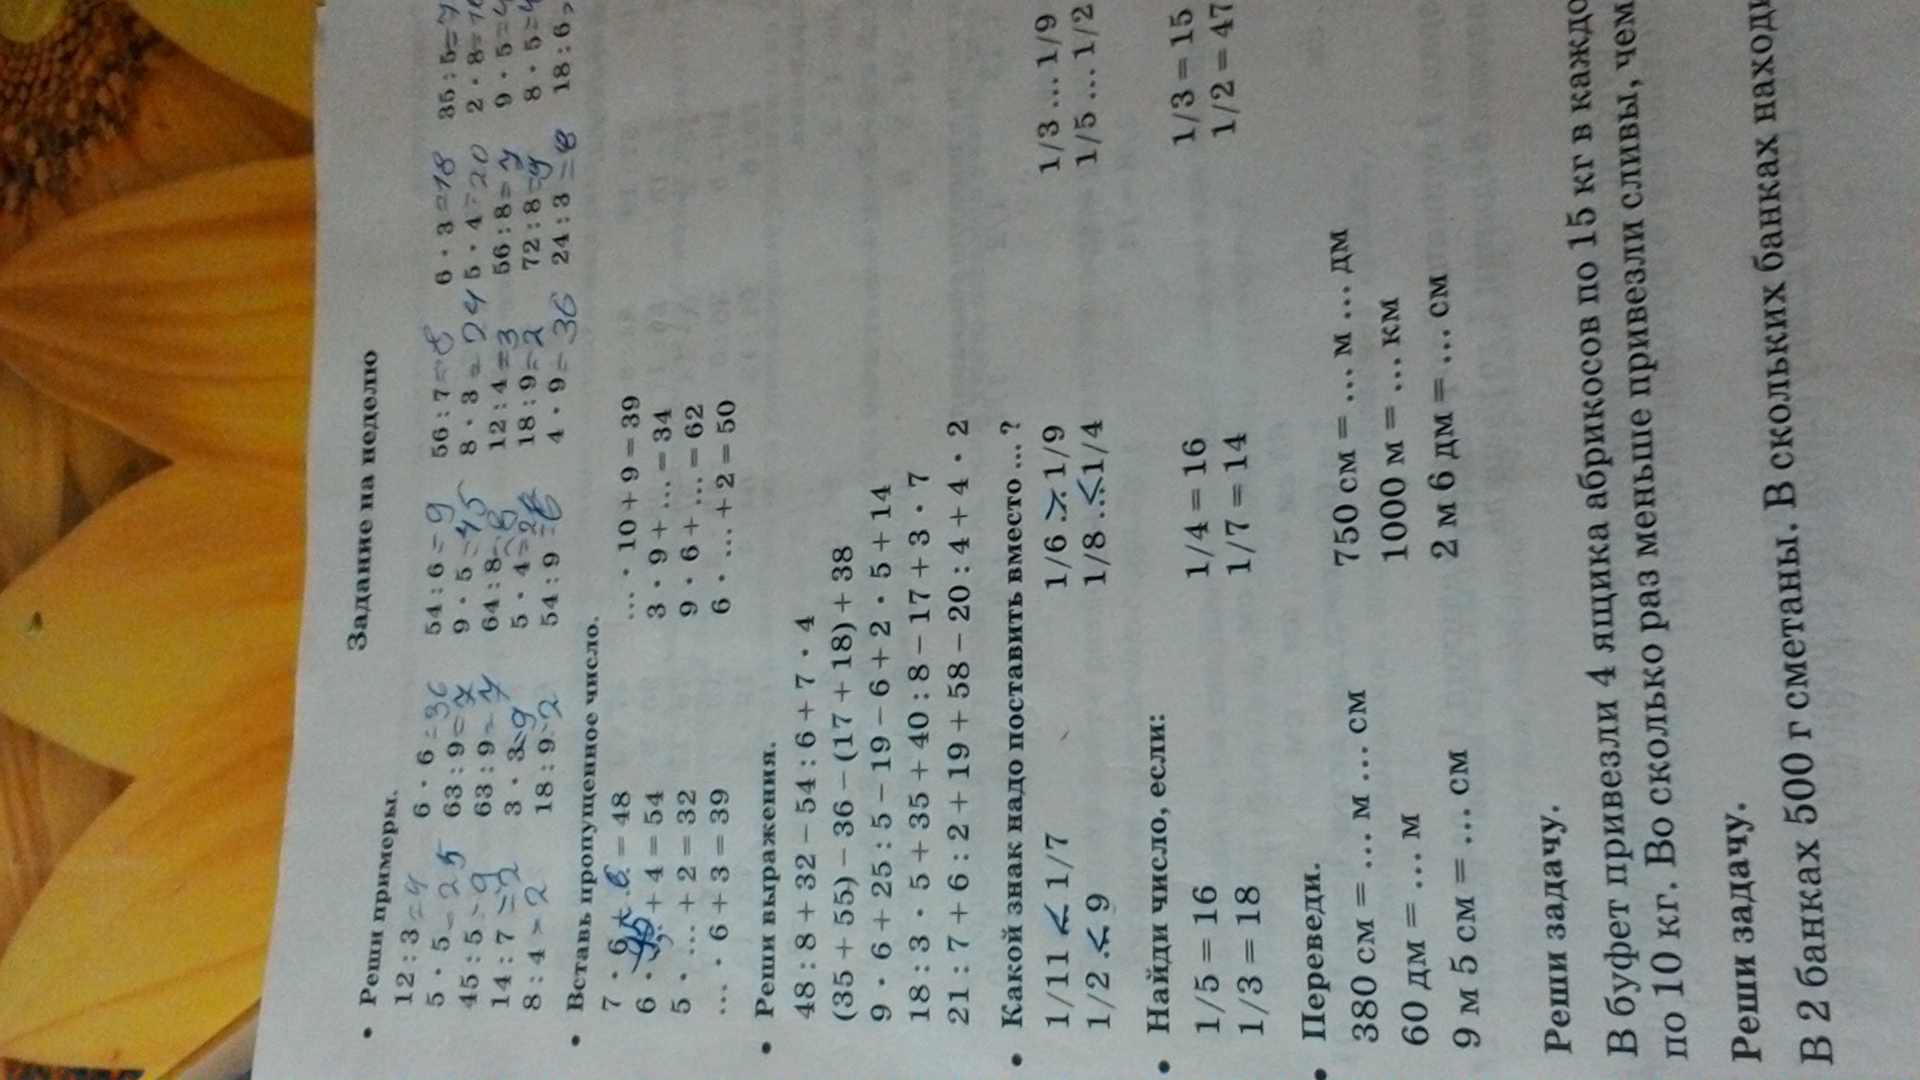 Задание на неделю
• Реши примеры.
12 : 3 = 4 6 · 6 = 36 54 : 6 = 9 56 : 7 = 8 6 · 3 = 18 35 : 5 = 7
5 · 5 = 25 63 : 9 = 7 9 · 5 = 45 8 · 3 = 24 5 · 4 = 20 2 · 8 = 16
45 : 5 = 9 63 : 9 = 7 64 : 8 = 8 12 : 4 = 3 56 : 8 = 7 9 · 5 = 4
14 : 7 = 2 3 · 3 = 9 5 · 4 = 18 : 9 = 2 72 : 8 = 9 8 · 5 = 4
8 : 4 = 2 18 : 9 = 2 54 : 9 = 6 4 · 9 = 36 24 : 3 = 8 18 : 6
• Вставь пропущенное число.
7 · 6 + 6 = 48 ... · 10 + 9 = 39
6 · + 4 = 54 3 · 9 + ... = 34
5 · ... + 2 = 32 9 · 6 + ... = 62
... · 6 + 3 = 39 6 · ... + 2 = 50
• Реши выражения.
48 : 8 + 32 – 54 : 6 + 7 · 4
(35 + 55) – 36 – (17 + 18) + 38
9 · 6 + 25 : 5 – 19 – 6 + 2 · 5 + 14
18 : 3 · 5 + 35 + 40 : 8 – 17 + 3 · 7
21 : 7 + 6 : 2 + 19 + 58 – 20 : 4 + 4 · 2
• Какой знак надо поставить вместо ... ?
1/11 < 1/7 1/6 ...> 1/9 1/3 ... 1/9
1/2 ..< 9 1/8 ...< 1/4 1/5 ... 1/2
• Найди число, если:
1/5 = 16 1/4 = 16 1/3 = 15
1/3 = 18 1/7 = 14 1/2 = 47
• Переведи.
380 см = ... м ... см 750 см = ... м ... дм
60 дм = ... м 1000 м = ... км
9 м 5 см = ... см 2 м 6 дм = ... см
Реши задачу.
В буфет привезли 4 ящика абрикосов по 15 кг в каждо
по 10 кг. Во сколько раз меньше привезли сливы, чем
Реши задачу.
В 2 банках 500 г сметаны. В скольких банках находи